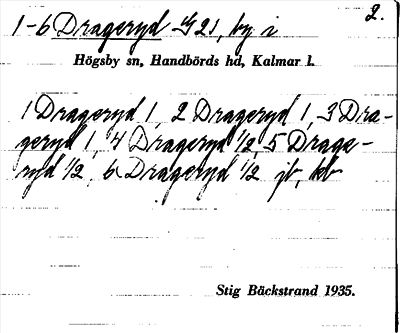 2.
1-6 Drageryd 4G21, by i
Högsby sn, Handbörds hd, Kalmar l.
1 Drageryd 1, 2 Drageryd 1, 3 Dra-
geryd 1, 4 Drageryd 1/2, 5 Drage-
ryd 1/2, 6 Drageryd 1/2 jb, kb
Stig Bäckstrand 1935.